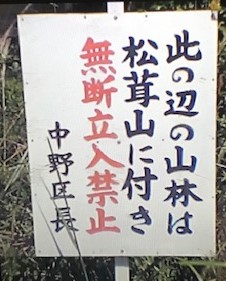 此の辺の山林は
松茸山に付き
無断立入禁止
中野区長